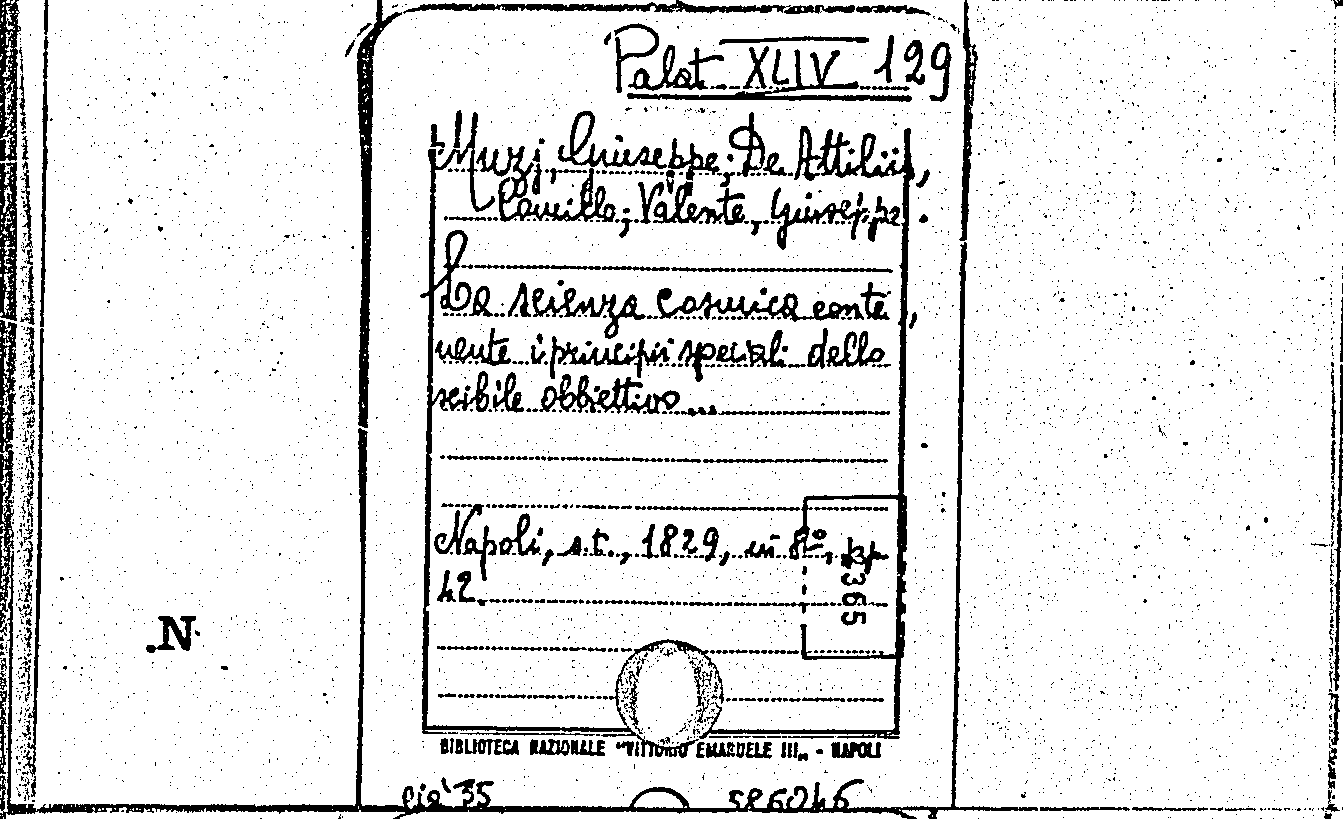 Palat XLIV 129
Muzj, Giuseppe; De Attiliis,
Camillo; Valente, Giuseppe.
La scienza cosmica conte,
nente i principii speciali dello
scibile obbiettivo...
Napoli, s.t., 1829, in 8º, pp
42.
365
.N
BIBLIOTECA NAZIONALE "VITTORIO EMANUELE III„ - NAPOLI
586046